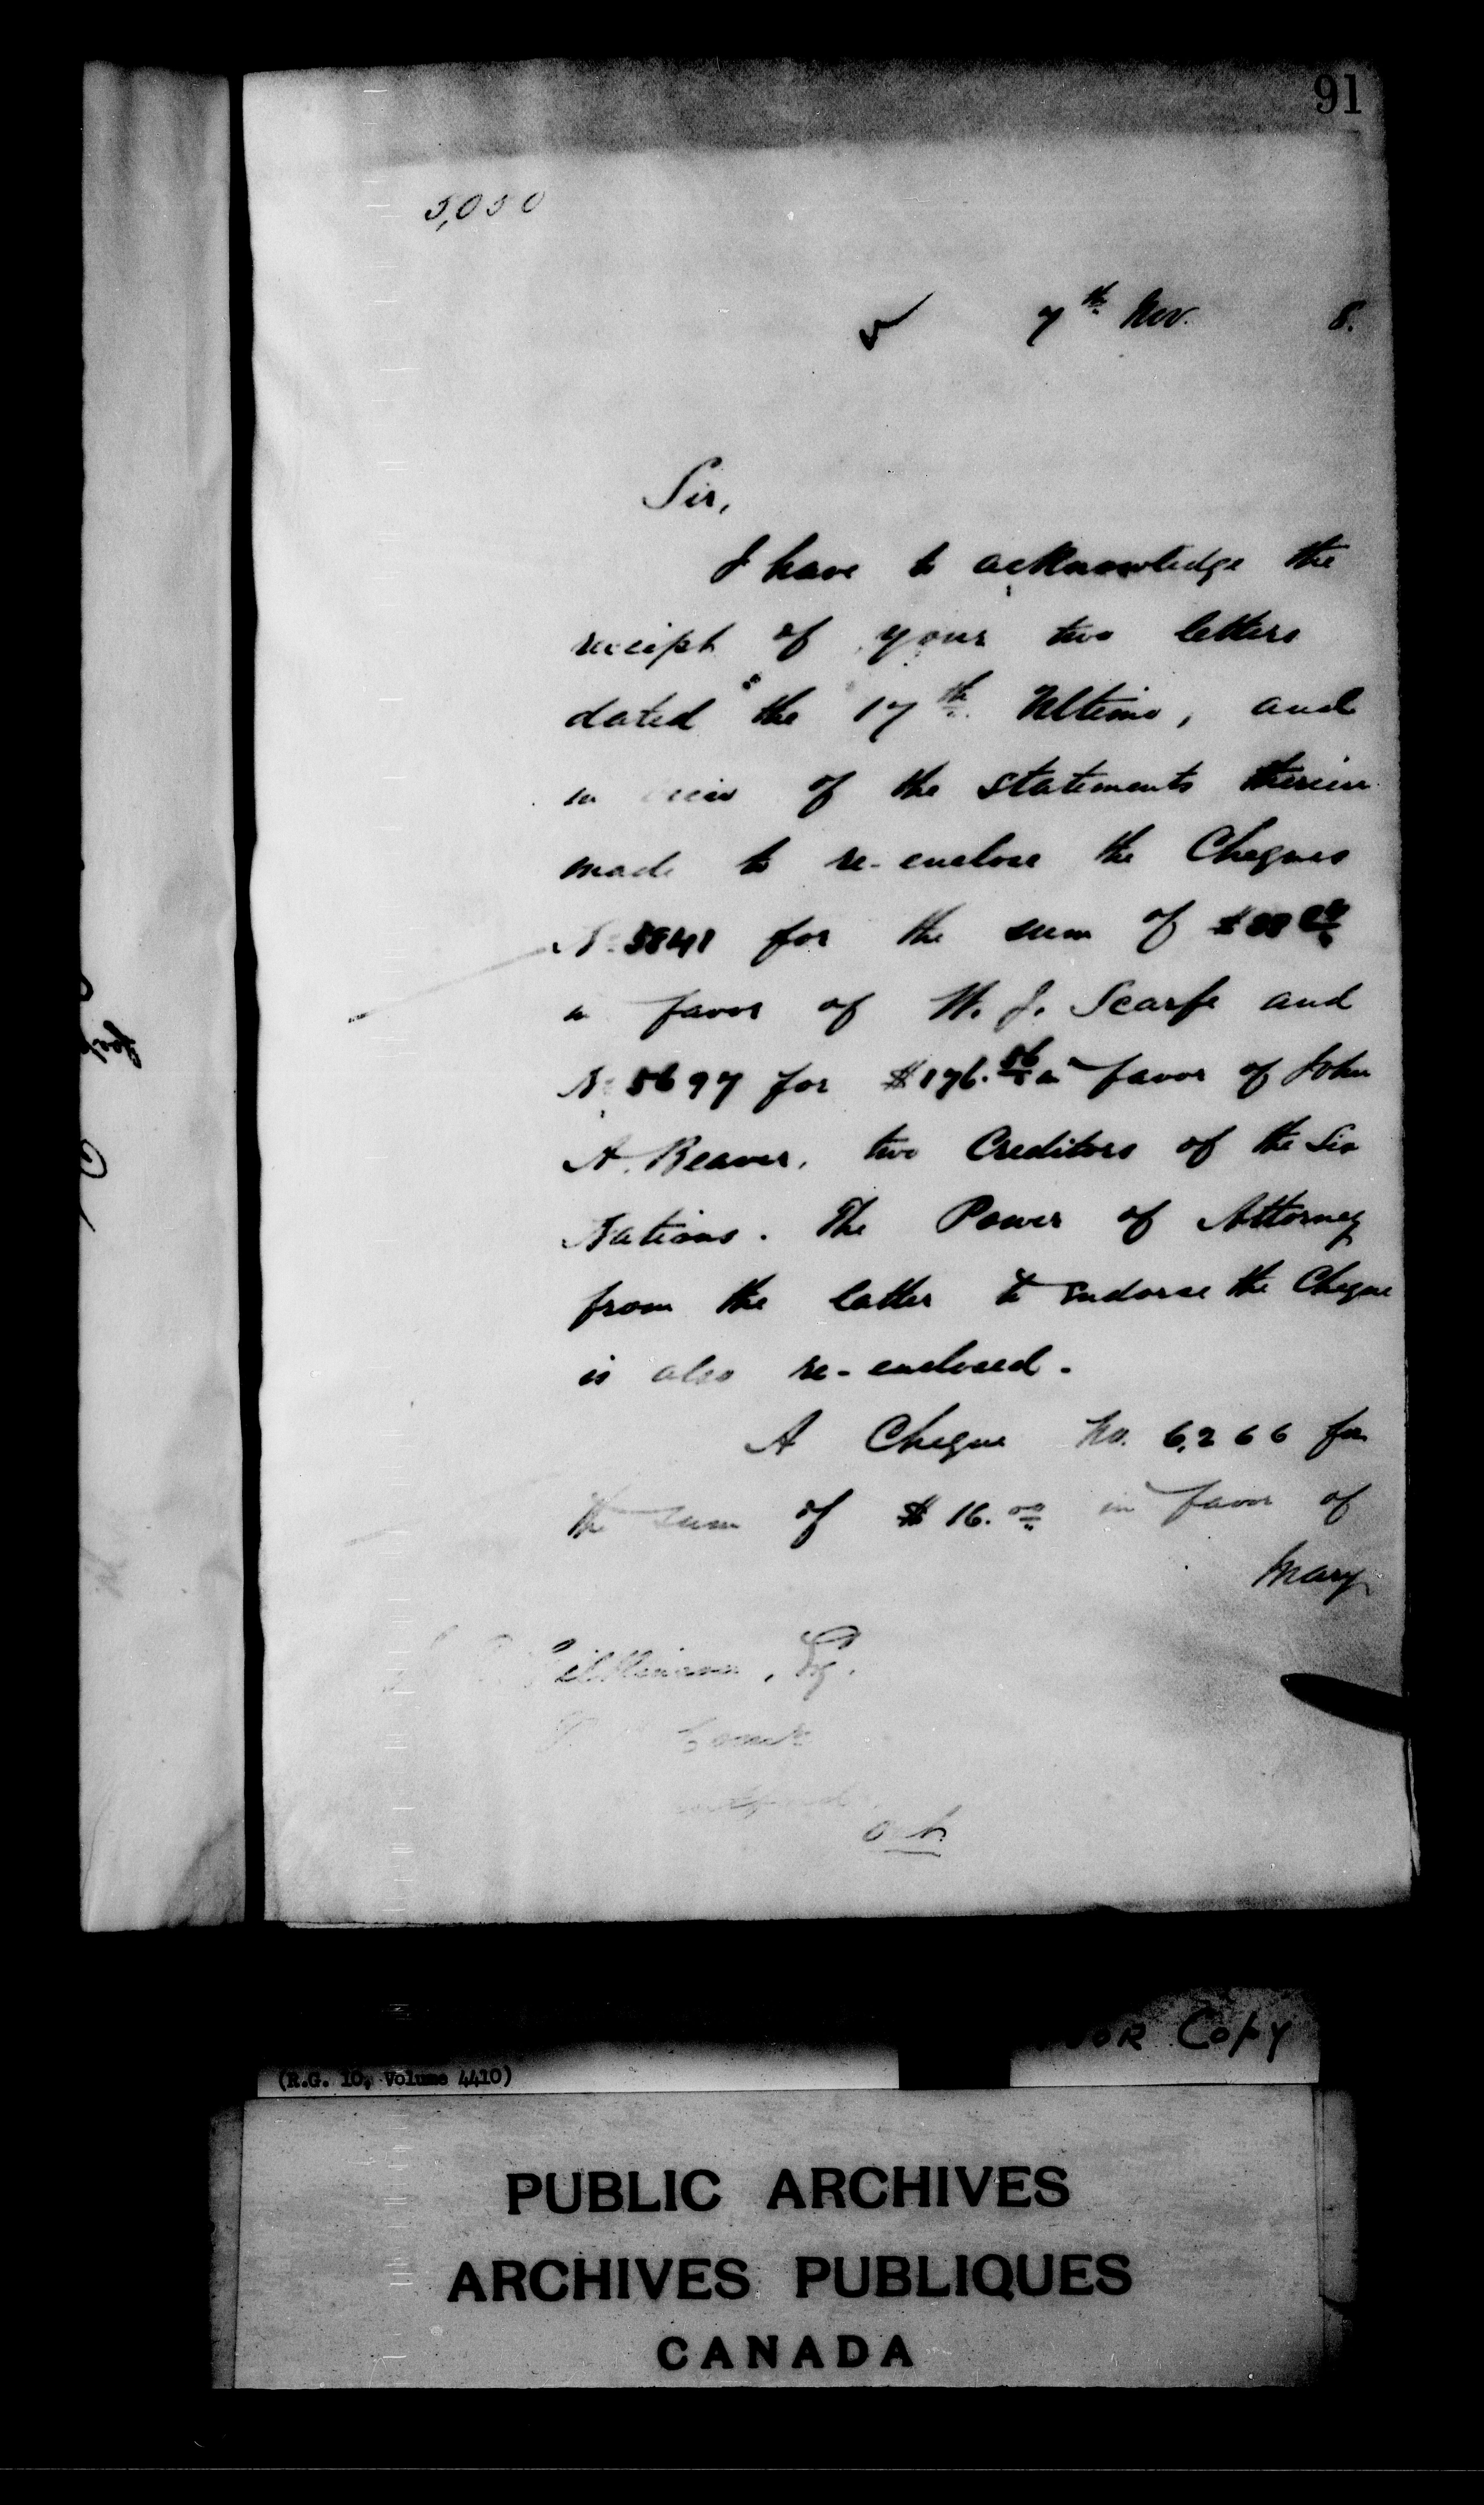 91
5,050
7th Nov. 8.
Sir,
I have to acknowledge the
receipt of your two letters
dated the 17th Ultimo, and
in view of the statements therein
made to re-enclose the Cheques
No. 5841 for the sum of
in favor of W. J. Scarfe and
No. 5697 for $176.56 in favor of John
A. Beaver, two Creditors of the Six
Nations. The Power of Attorney
from the latter to endorse the Cheque
is also re-enclosed.
A Cheque No. 6,266 for
the sum of $16.00 in favor of
Mary
Esq.
Copy
(R.G. 10, Volume 4410)
PUBLIC ARCHIVES
ARCHIVES PUBLIQUES
CANADA